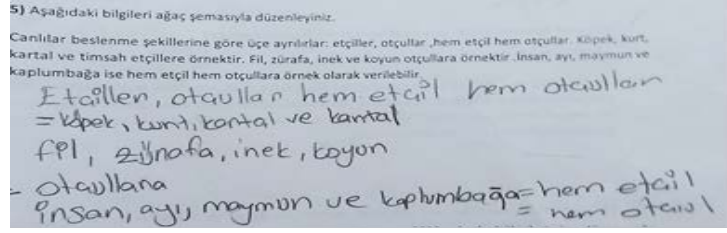 5) Aşağıdaki bilgileri ağaç şemasıyla düzenleyiniz.
Canlılar beslenme şekillerine göre üçe ayrılırlar: etçiller, otçullar ,hem etçil hem otçullar. Köpek, kurt,
kartal ve timsah etçillere örnektir. Fil, zürafa, inek ve koyun otçullara örnektir .İnsan, ayı, maymun ve
kaplumbağa ise hem etçil hem otçullara örnek olarak verilebilir.
Etçiller, otçullar hem etçil hem otçullar
= köpek, kurt, kartal ve kartal
fil, zürafa, inek, koyun
- otçullara
insan, ayı, maymun ve kaplumbağa= hem etçil
= hem otçul